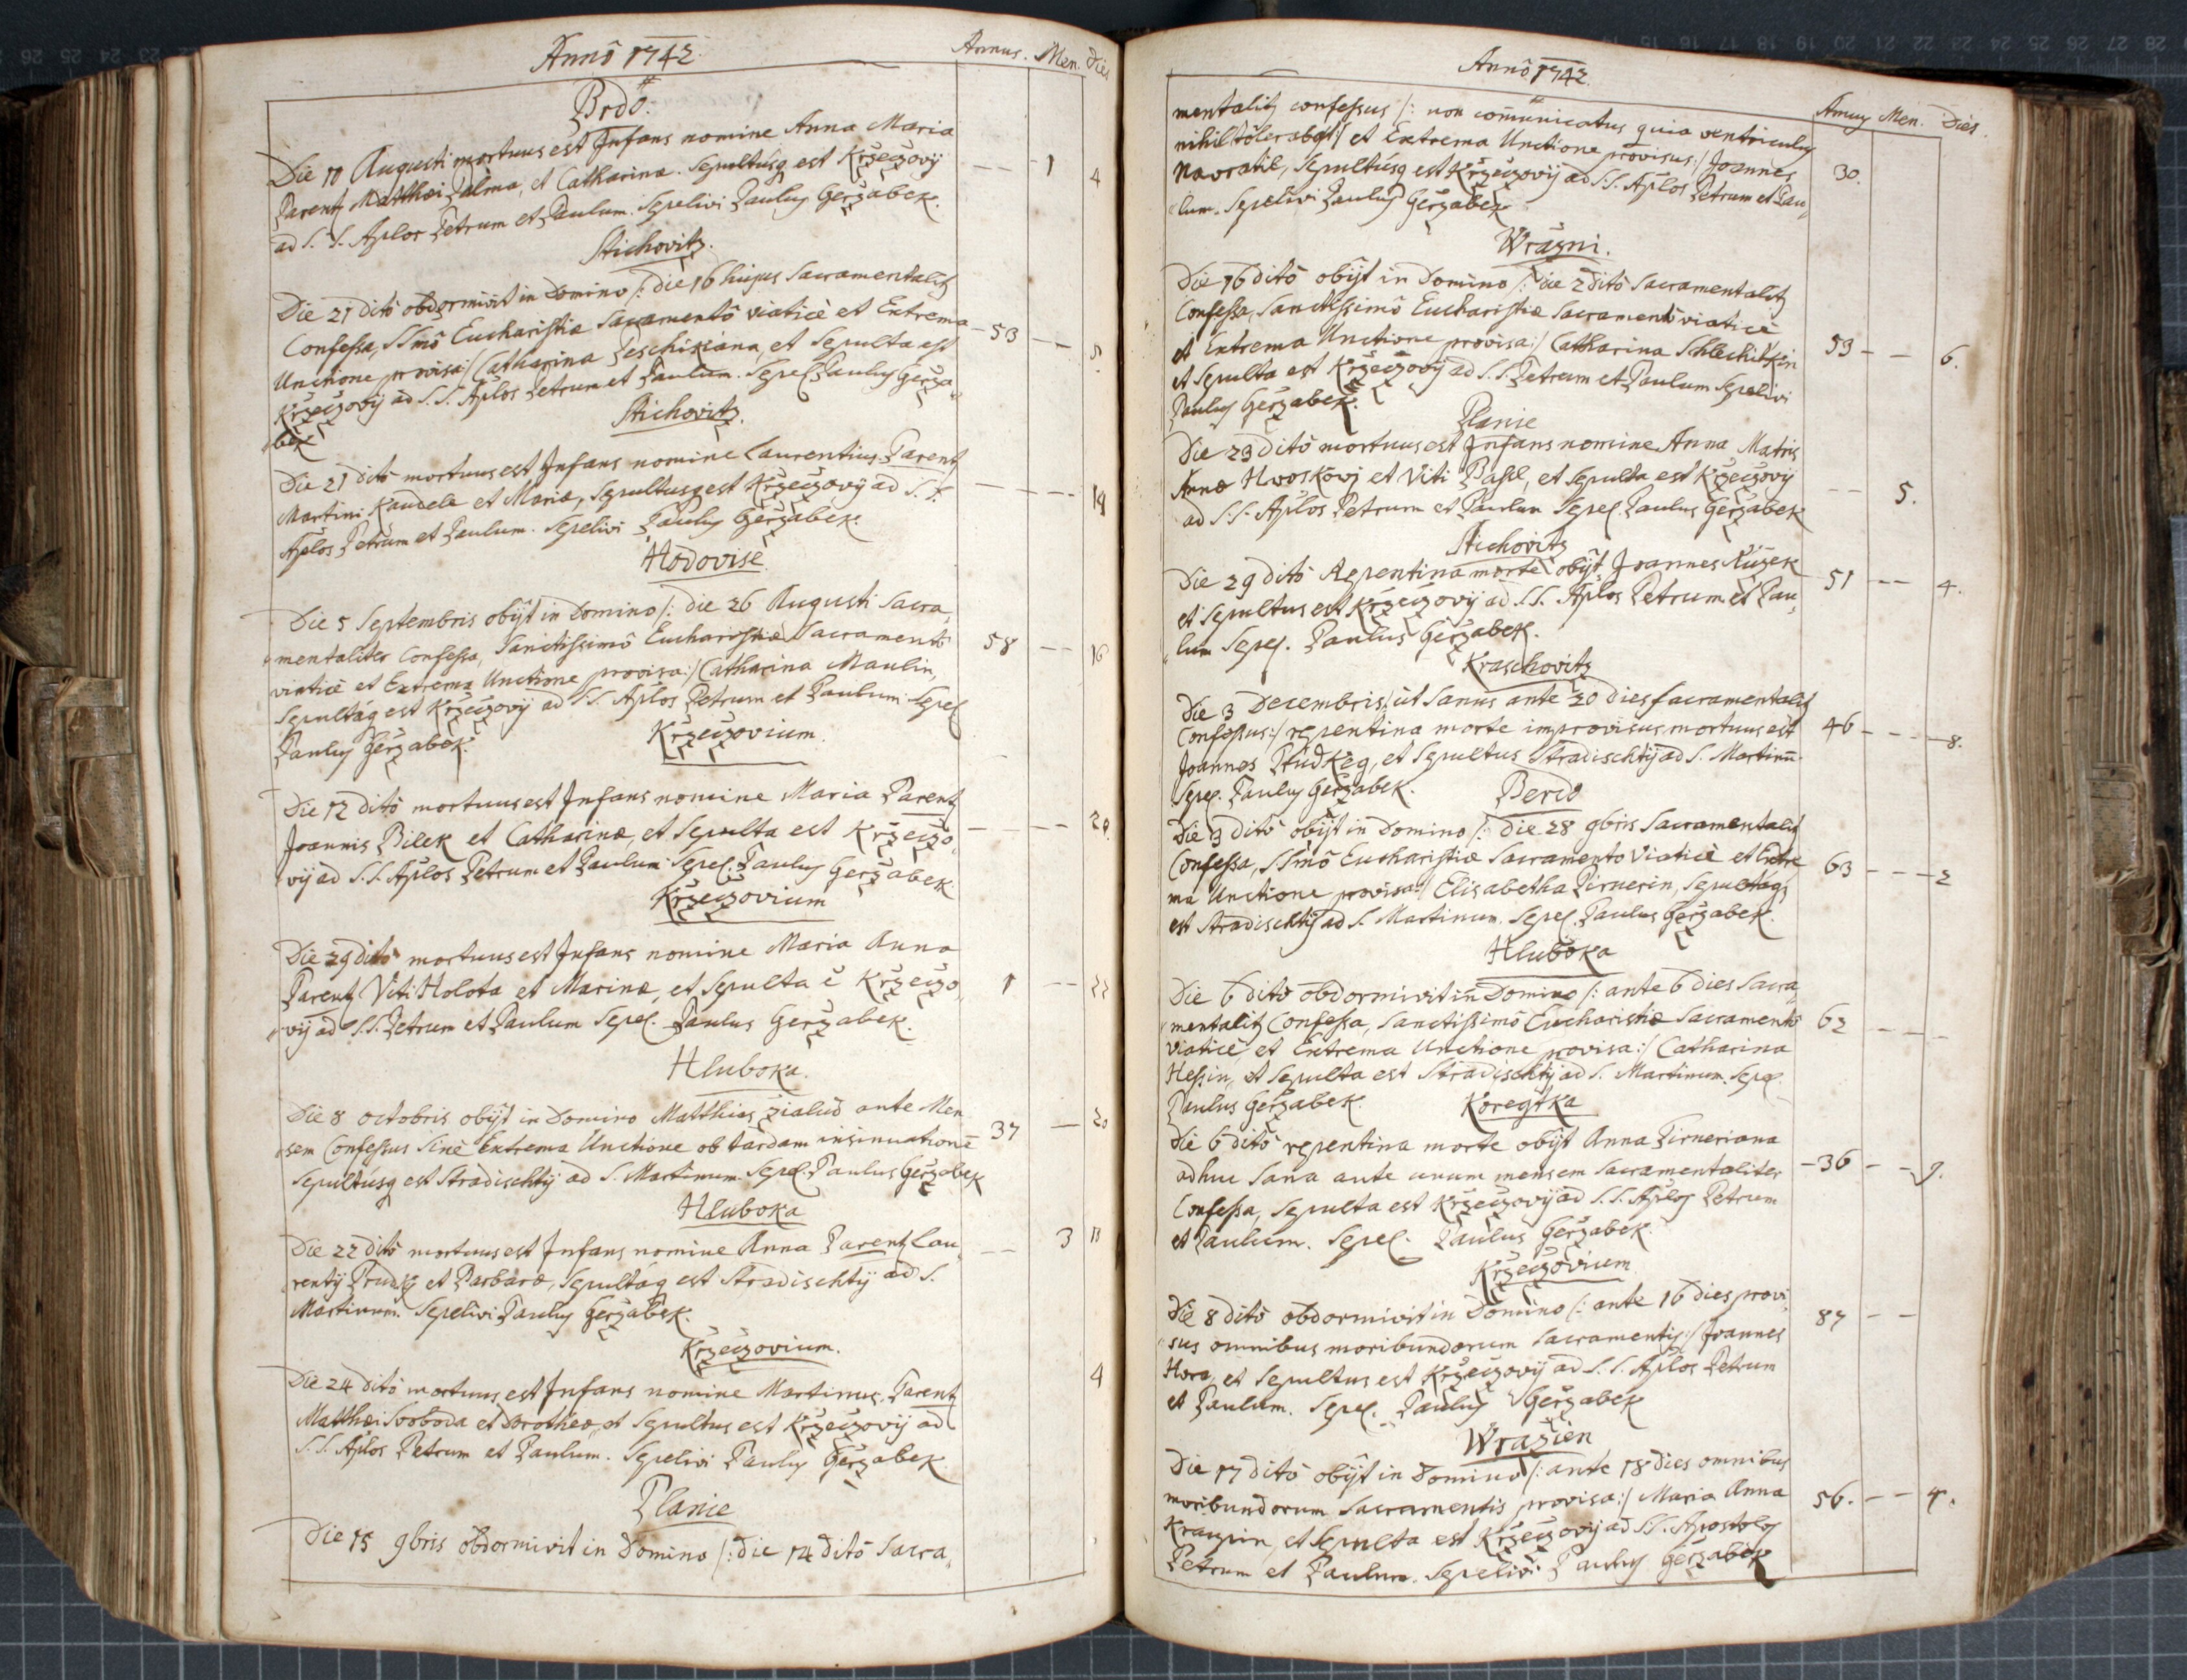 Annô 1742.
Annus. Men. Dies
Brdo.
Die 10 Augusti mortuus est Infans nomine Anna Maria
Parent Matthæi Palma, et Catharina. Sepultusq est Krzeczovÿ — — 1 4
ad S. S. Aplos Petrum et Paulum. Sepelivi Pauly Gerzabek.
Stichovitz.
Die 21 ditô obdormivit in Domino /: die 16 hujus Sacramentalit
Confessa, SSmô Eucharistiæ Sacramentô viaticè et Extrema — 53 — — 5
Unctione provisa :/ Catharina Peschikiana, et Sepulta est
Krzeczovÿ ad S. S. Aplos Petrum et Paulum. Sepel. Pauly Gerza
bek
Stichovitz.
Die 21 ditô mortuus est Infans nomine Laurentius Parent
Martini Kaudele et Mariæ, Sepultusq est Krzeczovÿ ad S. S. — — — 14
Aplos Petrum et Paulum. Sepelivi Pauly Gerzabek.
Hodovise
Die 5 Septembris obijt in Domino /: die 26 Augusti Sacra„
„mentaliter Confessa, Sanctissimô Eucharistiæ Sacramentô 58 — — 16
viaticè et Extrema Unctione provisa :/ Catharina Maulin,
Sepultáq est Krzeczovÿ ad S.S. Aplos Petrum et Paulum. Sepel
Pauly Gerzabek.
Krzeczovium.
Die 12 ditô mortuus est Infans nomine Maria Parent
Joannis Bilek et Catharinæ, et Sepulta est Krzeczo„ — — — 20.
„vÿ ad S. S. Aplos Petrum et Paulum. Sepel. Pauly Gerzabek
Krzeczovium
Die 29 ditô mortuus est Infans nomine Maria Anna
Parent Viti Holota et Marinæ, et Sepulta ē Krzeczo„ 1 — — 22
„vÿ ad S.S. Petrum et Paulum Sepel. Paulus Gerzabek.
Hluboka.
Die 8 octobris obÿt in Domino Matthias Zialud ante Men
„sem Confessus sine Extrema Unctione ob tardam insinuationē 37 — 20
Sepultúsq est Stradischtÿ ad S. Martinum. Sepel. Paulus Gerzabek
Hluboka
Die 22 ditô mortuus est Infans nomine Anna Parent Lau„ — — 3 11
rentÿ et Barbaræ, Sepultáq est Stradischtÿ ad S.
Martinum. Sepelivi Pauly Gerzabek.
Krzeczovium.
Die 24 ditô mortuus est Infans nomine Martinus. Parent 4
Matthæi Svoboda et Dorotheæ, et Sepultus est Krzeczovÿ ad
S. S. Aplos Petrum et Paulum. Sepelivi Pauly Gerzabek
Planie
Die 15 9bris obdormivit in Domino /: die 14 ditô Sacra„
Annô 1742.
Annuy Men. Dies.
mentalit confessus /: non com̄unicatus quia ventriculus
nihil tolerabat :/ et Extrema Unctione provisus :/ Joannes
Navratil, Sepultúsq est Krzeczovÿ ad S.S. Aplos Petrum et Pau„ 30.
„lum. Sepelivi Pauly Gerzabek
Wrazni.
Die 16 ditô obijt in Domino /: die 2 ditô Sacramentalit
Confessa, Sanctissimô Eucharistiæ Sacramentô viaticè
et Extrema Unctione provisa :/ Catharina Schlechitkin 53 — — 6.
et Sepulta est Krzeczovÿ ad S. S. Petrum et Paulum Sepelivi
Pauly Gerzabek.
Planie
Die 23 ditô mortuus est Infans nomine Anna Matris
Annæ Hvoskovj et Viti Basl, et Sepulta est Krzeczovÿ — — 5.
ad S.S. Aplos Petrum et Paulum Sepel. Paulus Gerzabek
Stichovitz
Die 29 ditô Repentina morte obÿt Joannes Ruzek 51 — — 4.
et Sepultus est Krzeczovÿ ad S.S. Aplos Petrum et Pau„
„lum Sepel. Paulus Gerzabek.
Kraschovitz
Die 3 Decembris ut Sanus ante 20 dies sacramentalit
Confessus :/ repentina morte improvisus mortuus est 46 — — — 8.
Joannes, et Sepultus Stradischtÿ ad S. Martinū.
Sepel. Pauly Gerzabek.
Berdo
Die 3 ditô obÿt in Domino /: die 28 9bris Sacramentalit
Confessa, SSmô Eucharistiæ Sacramento Viaticè et Extre 63 — — — 2
ma Unctione provisa :/ Elisabetha Pirnerin, Sepultáq
est Stradischtÿ ad S. Martinum. Sepel. Paulus Gerzabek.
Hluboka
Die 6 ditô obdormivit in Domino /: ante 6 dies Sacra„
„mentalit Confessa, Sanctissimô Eucharistiæ Sacramentô 62 — — —
Viaticè, et Extrema Unctione provisa :/ Catharina
Hessin, et Sepulta est Stradischtÿ ad S. Martinum. Sepel.
Paulus Gerzabek.
Koregtka
Die 6 ditô repentina morte obÿt Anna Pirneriana
adhuc Sana ante unum mensem Sacramentaliter — 36 — — 9.
Confessa, Sepulta est Krzeczovÿ ad S.S. Aplos Petrum
et Paulum. Sepel. Paulus Gerzabek.
Krzeczovium
Die 8 ditô obdormivit in Domino /: ante 16 dies provi„ 87 — —
„sus omnibus moribundorum Sacramentis :/ Joannes
Hora, et Sepultus est Krzeczovÿ ad S. S. Aplos Petrum
et Paulum. Sepel. Pauly Gerzabek
Wrazien
Die 17 ditô obÿt in Domino /: ante 18 dies omnibus
moribundorum Sacramentis provisa :/ Maria Anna 56. — — 4.
et Sepulta est Krzeczovÿ ad S.S. Apostolos
Petrum et Paulum. Sepelivi Pauly Gerzabek